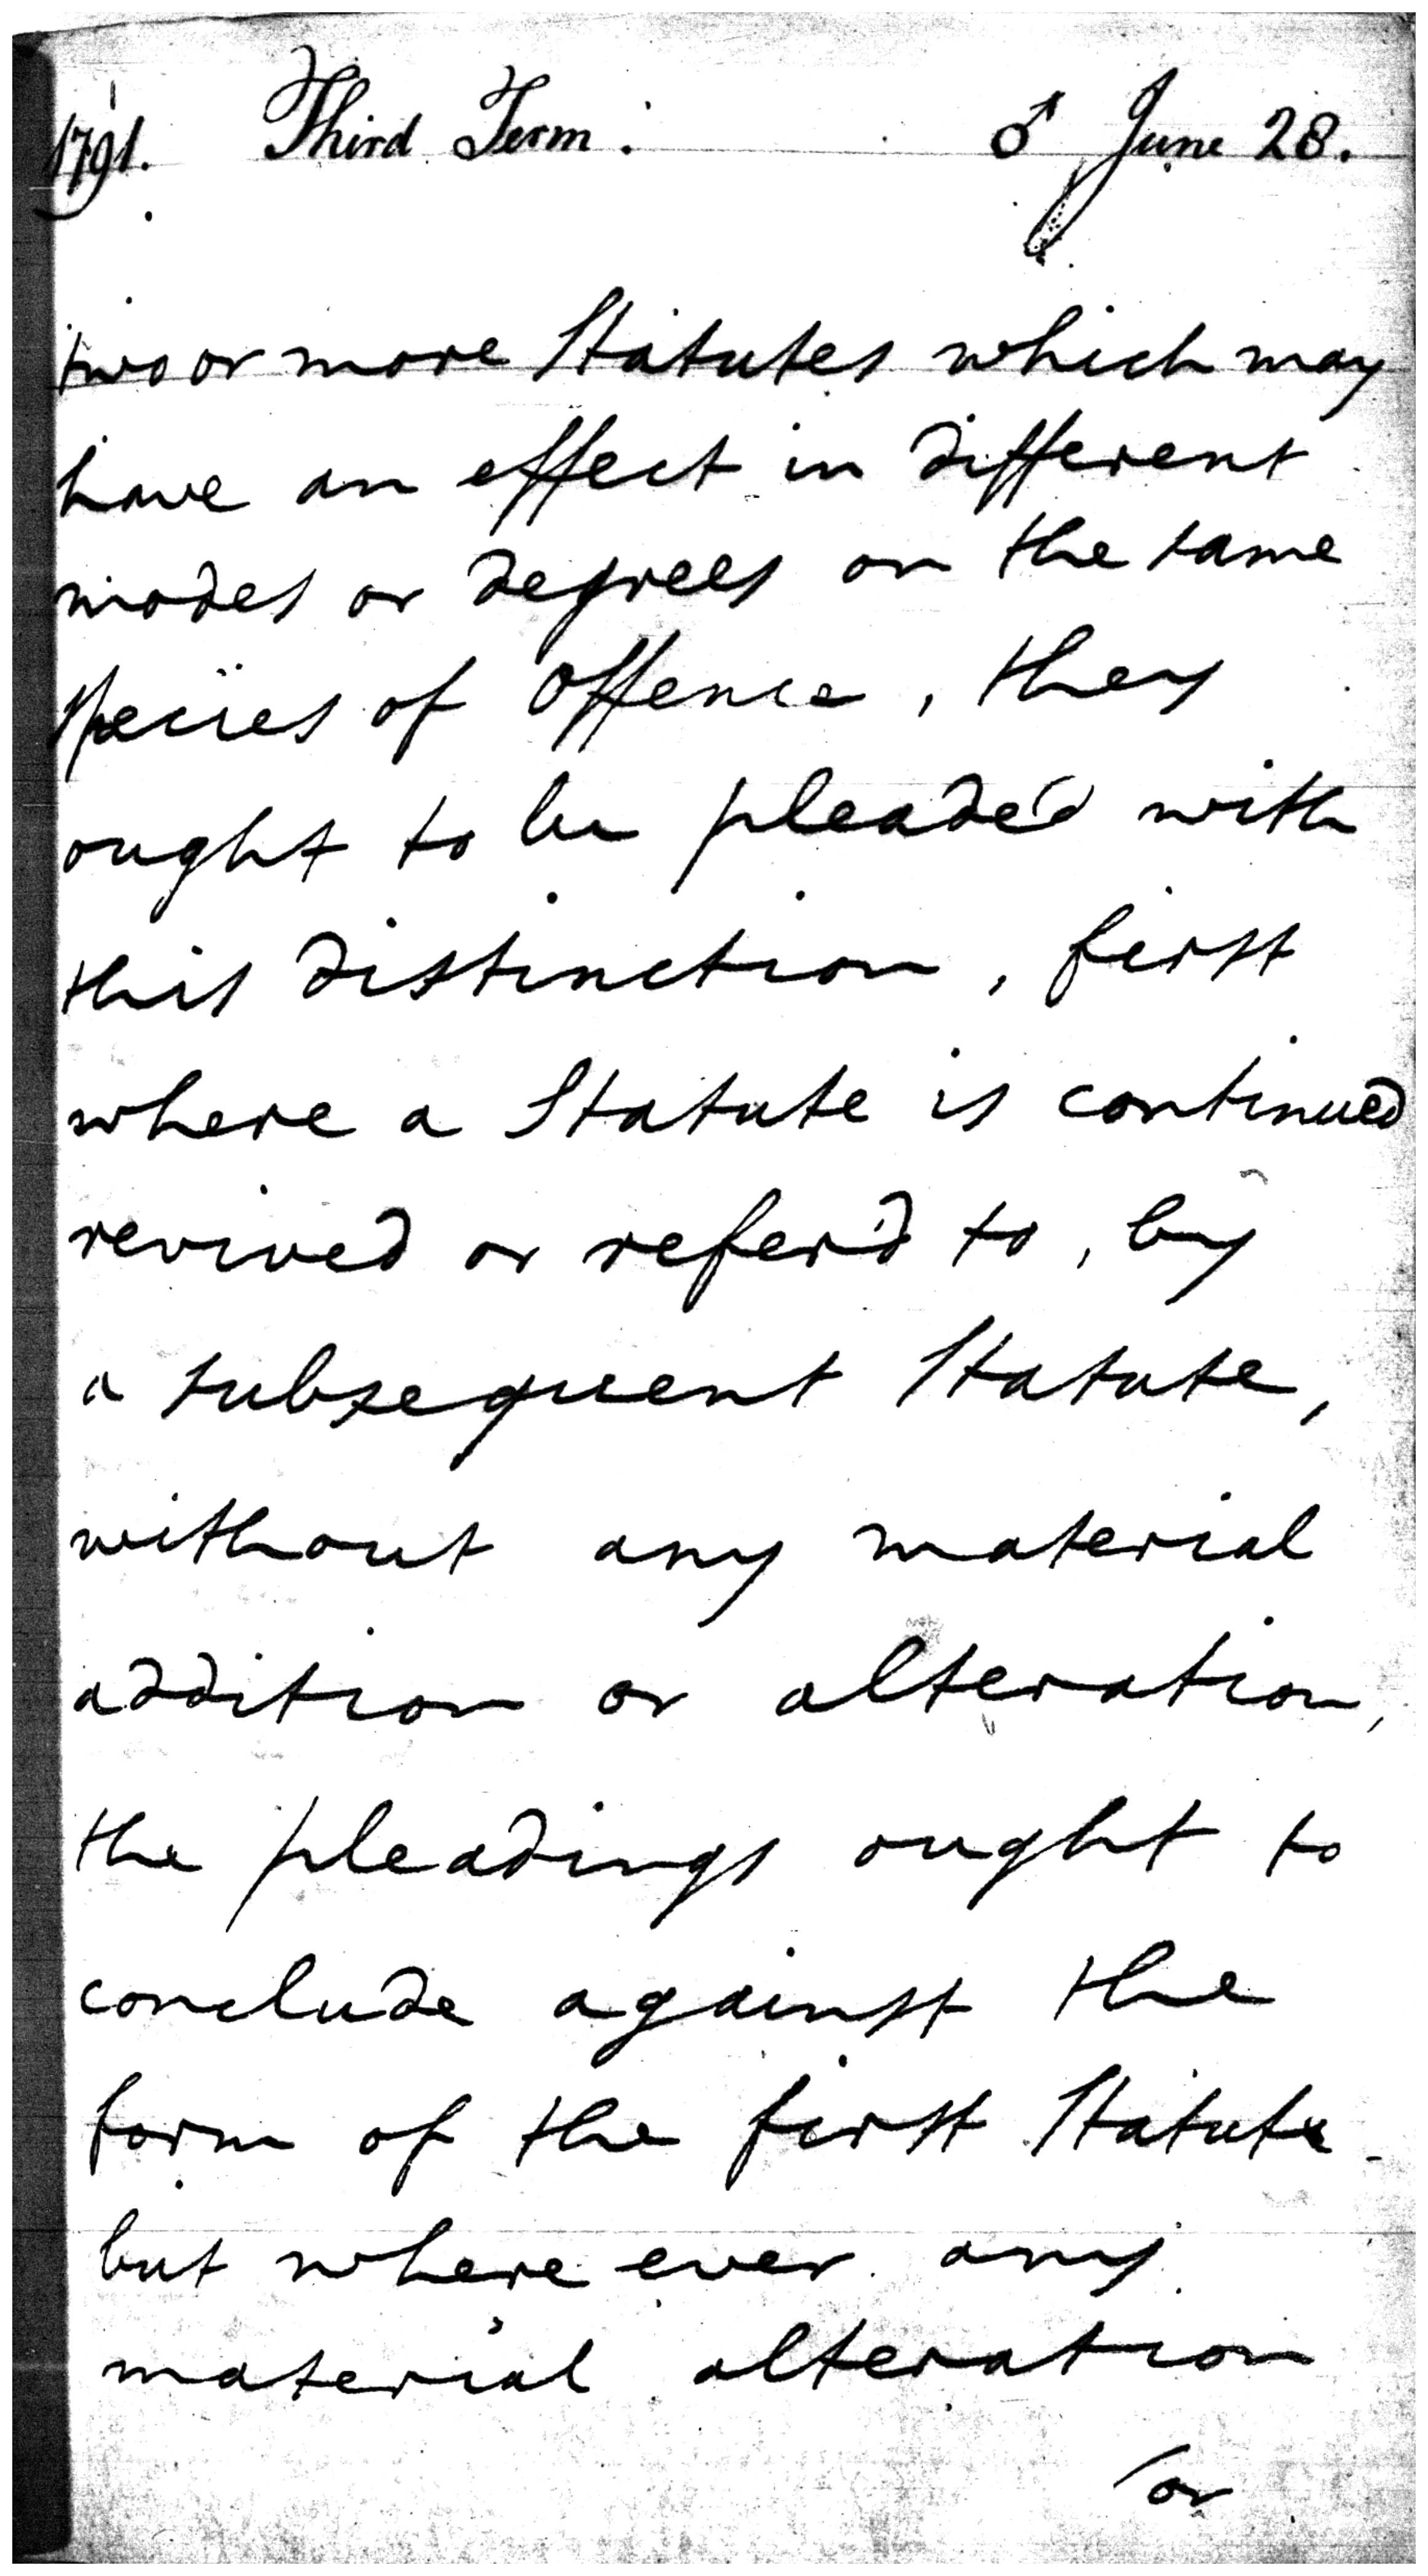 1791. Third Term. ♂ June 28.
two or more Statutes which may
have an effect in different
modes or degrees on the same
species of Offence, they
ought to be pleade'd with
this distinction, first
where a Statute is continued
revived or refer'd to, by
a subsequent Statute,
without any material
addition or alteration,
the pleadings ought to
conclude against the
form of the first Statute
but where ever any
material alteration
or